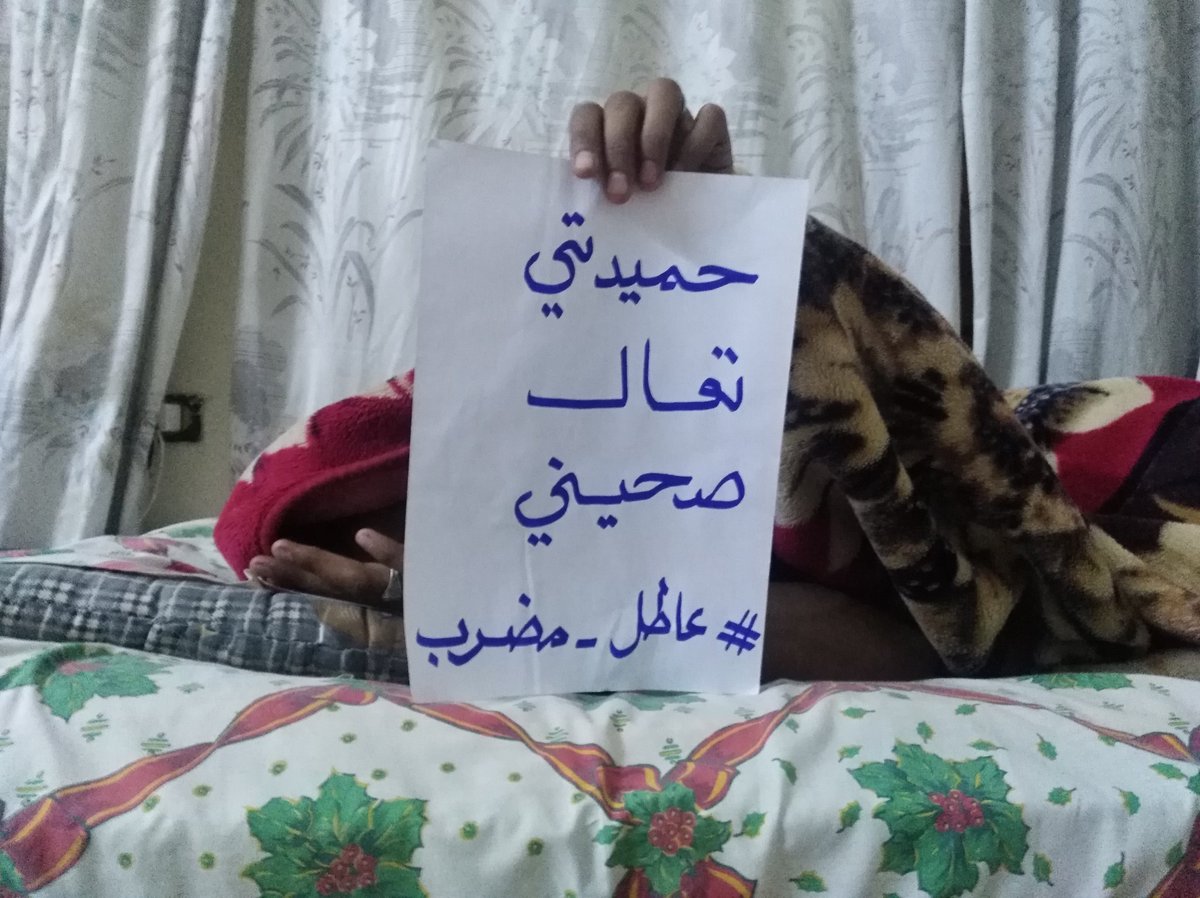 حميدتي
تعال
صحيني
# عاطل - مضرب